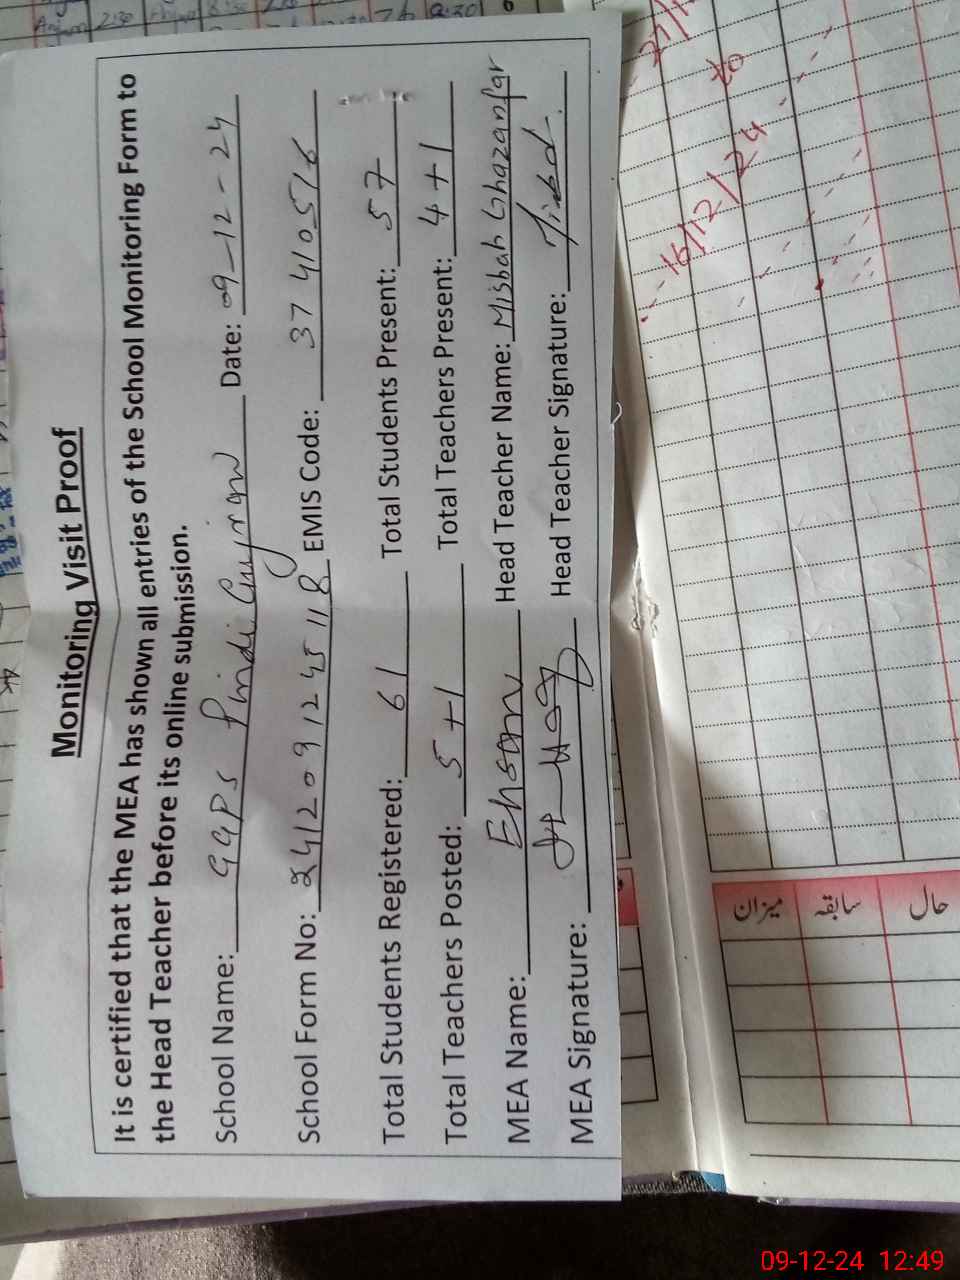 Monitoring Visit Proof
It is certified that the MEA has shown all entries of the School Monitoring Form to
the Head Teacher before its online submission.
School Name: GGPS Pindi Gujran Date: 09-12-24
School Form No: 2412091245118 EMIS Code: 37410516
Total Students Registered: 61 Total Students Present: 57
Total Teachers Posted: 5+1 Total Teachers Present: 4+1
MEA Name: Ehsan Head Teacher Name: Misbah Ghazanfar
MEA Signature: Head Teacher Signature:
16/12/24
to
میزان
سابقہ
حال
09-12-24 12:49